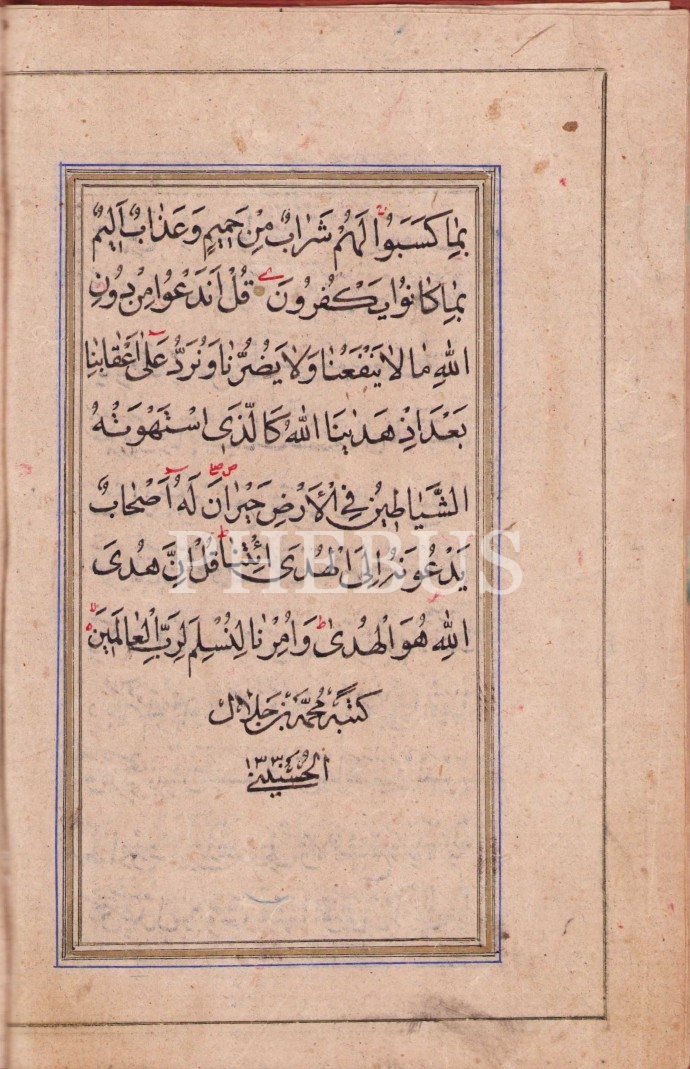 بِمَا كَسَبُوا لَهُمْ شَرَابٌ مِنْ حَمِيمٍ وَعَذَابٌ اَلِيمٌ
بِمَا كَانُوا يَكْفُرُونَ قُلْ اَنَدْعُوا مِنْ دُونِ
اللهِ مَا لَا يَنْفَعُنَا وَلَا يَضُرُّنَا وَنُرَدُّ عَلٰى اَعْقَابِنَا
بَعْدَ اِذْ هَدٰينَا اللهُ كَالَّذِى اسْتَهْوَتْهُ
الشَّيَاطِينُ فِى الْاَرْضِ حَيْرَانَ لَهُ اَصْحَابٌ
يَدْعُونَهُ اِلَى الْهُدَى ائْتِنَا قُلْ اِنَّ هُدَى
اللهِ هُوَ الْهُدٰى وَاُمِرْنَا لِنُسْلِمَ لِرَبِّ الْعَالَمِينَ
كتبه محمد بن جلال
الحسيني ١٣٣
PHEBUS